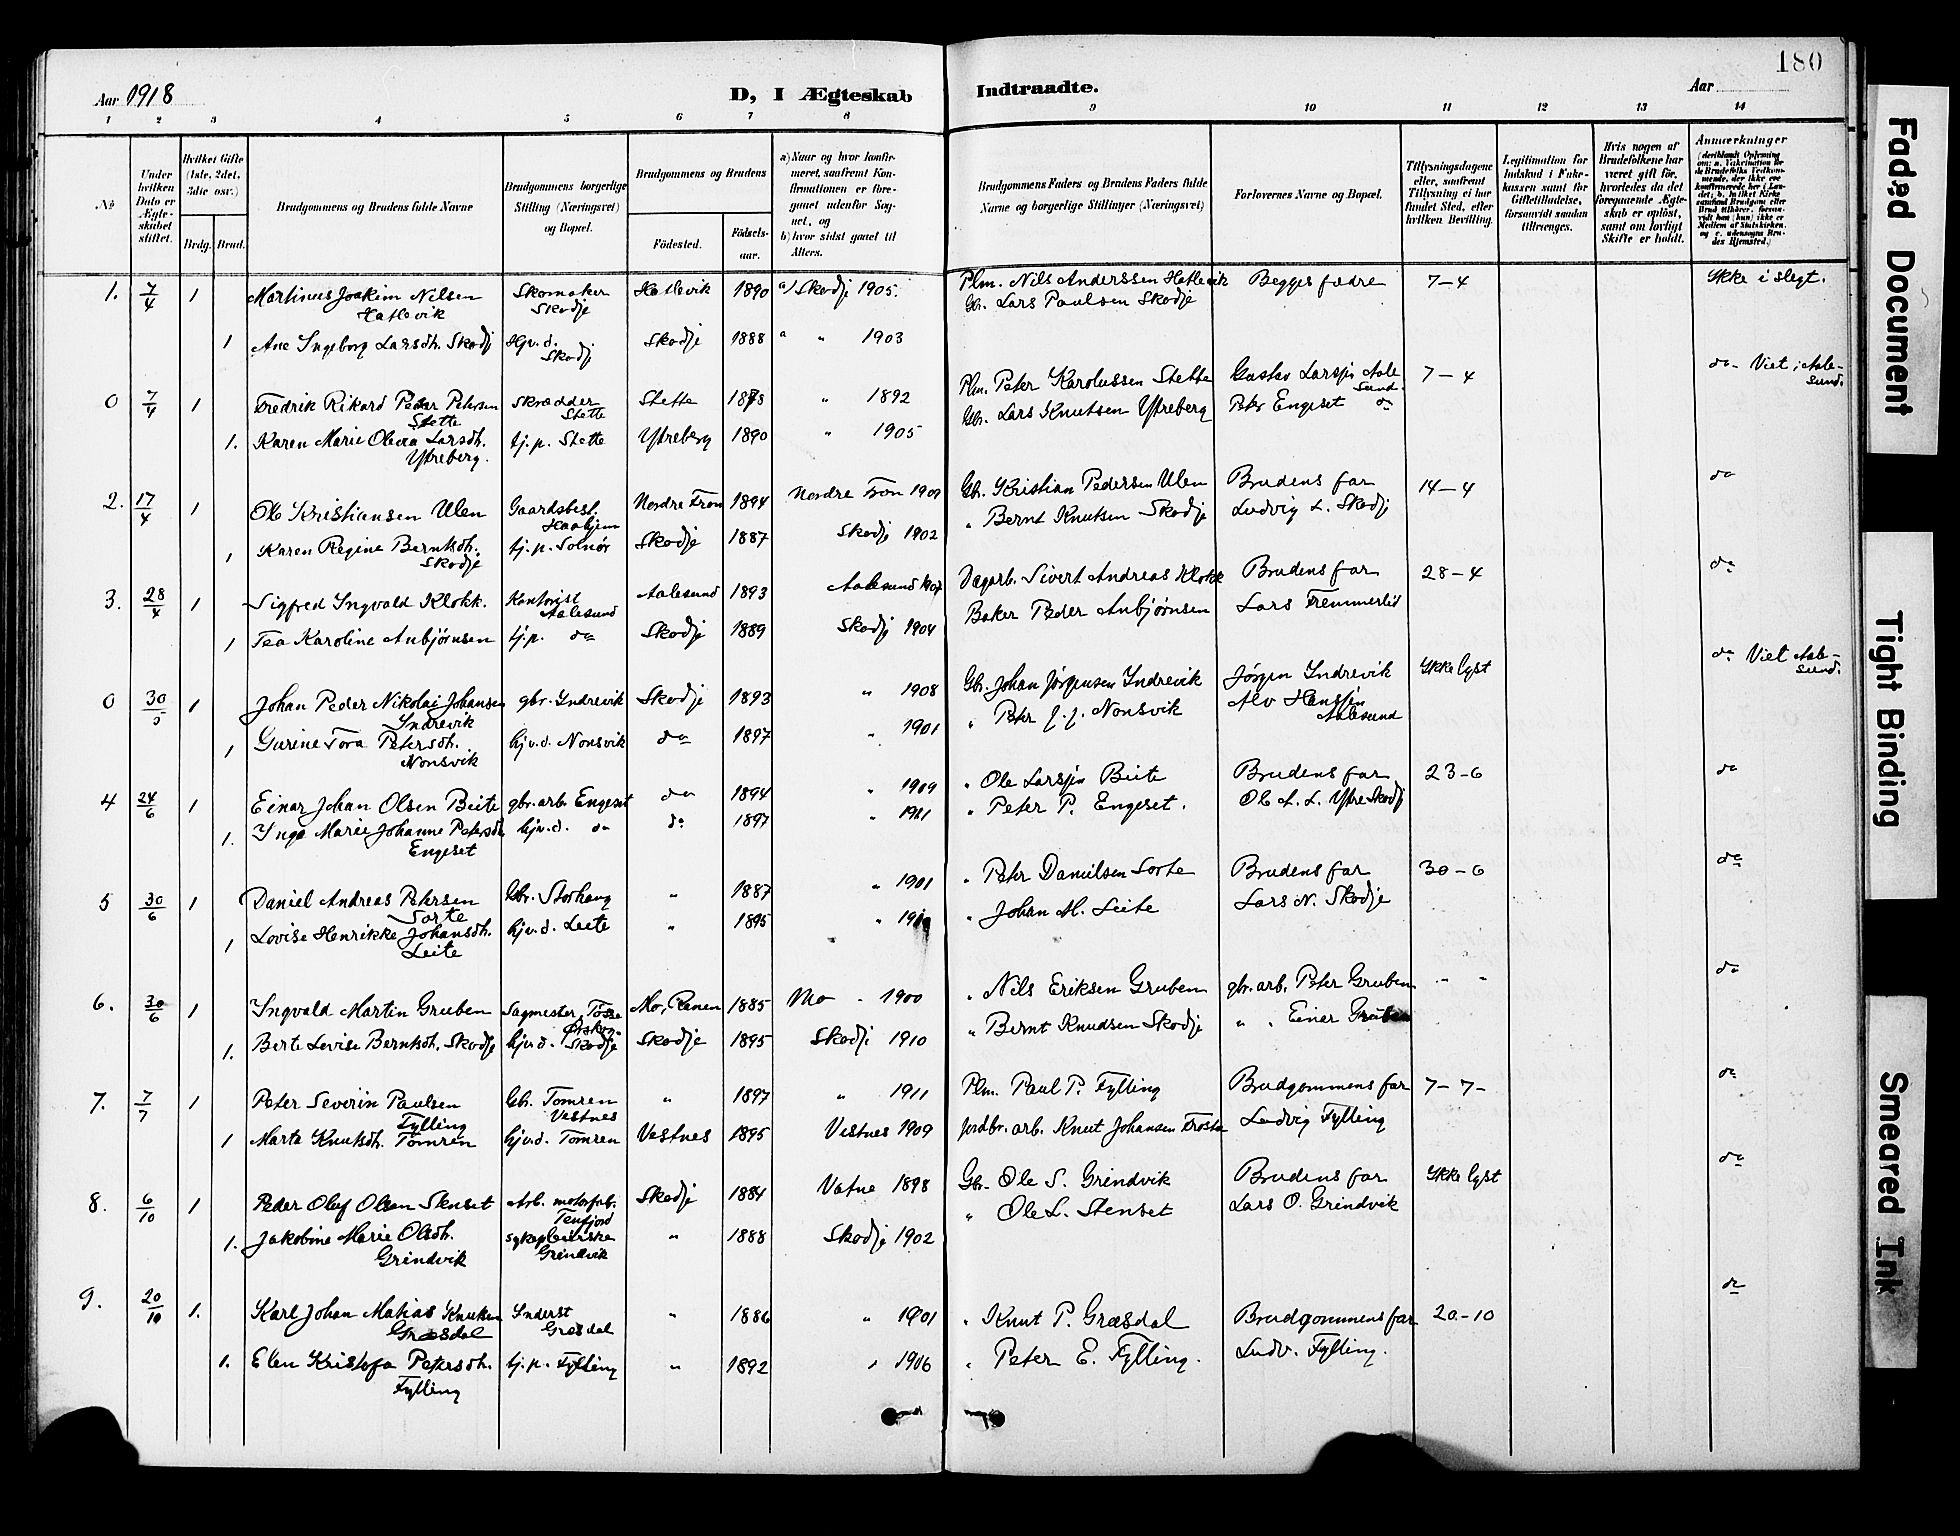 180
Aar 1918
D, I Ægteskab Indtraadte.
Aar
1 2 3 4 5 6 7 8 9 10 11 12 13 14
No
Under hvilken Dato er Ægteskabet stiftet.
Hvilket Gifte (1ste, 2det, 3die osv.)
Brdg. Brud.
Brudgommens og Brudens fulde Navne
Brudgommens borgerlige Stilling (Næringsvei) og Bopæl.
Brudgommens og Brudens
Fødested.
Fødselsaar.
a) Naar og hvor konfirmeret, saafremt Konfirmationen er foregaaet udenfor Sognet, og
b) hvor sidst gaaet til Alters.
Brudgommens Faders og Brudens Faders fulde Navne og borgerlige Stillinger (Næringsvei)
Forlovernes Navne og Bopæl.
Tillysningsdagene eller, saafremt Tillysning ei har fundet Sted, efter hvilken Bevilling.
Legitimation for Indskud i Enkekassen samt for Giftetilladelse, forsaavidt saadan tiltrænges.
Hvis nogen af Brudefolkene har været gift før, hvorledes da det foregaaende Ægteskab er opløst, samt om lovligt Skifte er holdt.
Anmærkninger
1. 7/4 1 Martinus Joakim Nilsen Hatlevik Skomaker Skodje Hatlevik 1890 a) Skodje 1905. Plm. Nils Anderssen Hatlevik Begges fædre 7-4 Ikke i slegt.
1 Ane Ingeborg Larsdt. Skodj Hjv.d. Skodj Skodje 1888 a " 1903 Gbr. Lars Paulsen Skodje
0 7/4 1 Fredrik Rikard Peder Petersen Stette Skrædder Stette Stette 1878 " 1892 Plm. Peter Karolussen Stette Gustav Larsen Aalesund. 7-4 do - Viet i Aalesund.
1. Karen Marie Olena Larsdt. Ytreberg. tj.p. Stette Ytreberg 1890 " 1905 Gbr. Lars Knutsen Ytreberg Petr Engeset do
2. 17/4 1 Ole Kristiansen Ulen Gaardsbest. Haahjem Nordre Fron 1894 Nordre Fron 1909 Gbr. Kristian Pedersen Ulen Brudens far 14-4 do
1 Karen Regine Berntsdt. Skodje tj.p. Solnør Skodje 1887 Skodje 1902 " Bernt Knutsen Skodje Ludvig L. Skodj
3. 28/4 1 Sigfred Ingvald Klokk. Kontorist Aalesund Aalesund 1893 Aalesund 1907 Dagarb. Sivert Andreas Klokk Brudens far 28-4 do
1 Tea Karoline Anbjørnsen tj.p. do Skodje 1889 Skodje 1904 Baker Peder Anbjørnsen Lars Fremmerlid
0 30/5 1 Johan Peder Nikolai Johansen Indrevik gbr. Indrevik Skodje 1893 " 1908 Gbr. Johan Jørgensen Indrevik Jørgen Indrevik Ikke lyst do Viet Aalesund.
1 Gurine Tora Petersdt. Nonsvik hjv.d. Nonsvik do 1897 " 1901 " Petr J. J. Nonsvik Alv Aalesund
4 24/6 1 Einar Johan Olsen Beite gbr.arb. Engeset do 1894 " 1909 " Ole Larsen Beite Brudens far 23-6 do
1. Inga Marie Johanne Petersdt. Engeset hjv.d. do do 1897 " 1911 " Peter P. Engeset. Ole L. L. Ytre Skodj
5 30/6 1 Daniel Andreas Petersen Sorte Gbr. Storhaug " 1887 " 1901 " Petr Danielsen Sorte Brudens far 30-6 do
1 Lovise Henrikke Johansdt. Leite hjv.d. Leite " 1895 " " Johan M. Leite Lars N. Skodje
6. 30/6 1 Ingvald Martin Gruben Sagmester, Tosse Ørskog Mo, Ranen 1885 Mo " 1900 " Nils Eriksen Gruben gbr.arb. Peter Gruben " " do
1. Berte Lovise Berntsdt. Skodje hjv.d. Skodje Skodje 1895 Skodje 1910 " Bernt Knudsen Skodje " " Einar Gruben
7. 7/7 1 Peter Severin Paulsen Fylling Gbr. Tomren Vestnes " 1897 " 1911 Plm. Paul P. Fylling Brudgommens far 7-7- do
1 Marta Knutsdt. Tomren hjv.d. Tomren Vestnes 1895 Vestnes 1909 Jordbr. arb. Knut Johansen Frosta Ludvig Fylling
8. 6/10 1 Peder Oluf Olsen Stenset Arb. motorfab. Tenfjord Skodje 1884 Vatne 1898 Gbr. Ole S. Grindvik Brudens far Ikke lyst do
1. Jakobine Marie Olsdt. Grindvik sykepleierske Grindvik " 1888 Skodje 1902 " Ole L. Stenset Lars O. Grindvik
9. 20/10 1. Karl Johan Matias Knutsen Græsdal Inderst Græsdal " 1886 " 1901 " Knut P. Græsdal Brudgommens far 20-10 do
1. Elen Kristofa Petersdt. Fylling tj.p. Fylling " 1892 " 1906 " Peter E. Fylling. Ludv. Fylling.
Faded Document
Tight Binding
Smeared Ink